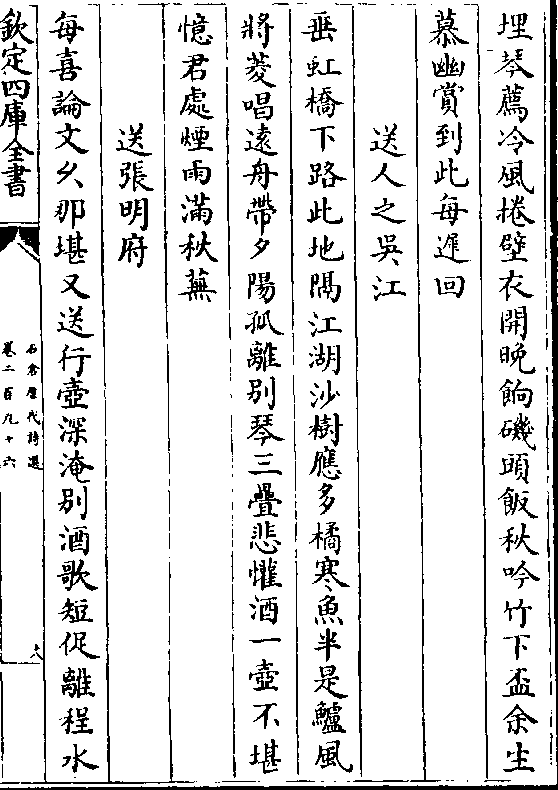 埋琴薦冷風捲壁衣開晚餉磯頭飯秋吟竹下盃余生
慕幽賞到此每遲回
送人之吳江
垂虹橋下路此地隅江湖沙樹應多橘寒魚半是鱸風
將菱唱遠舟帶夕陽孤離別琴三疊悲懽酒一壺不堪
憶君處煙雨滿秋蕪
送張明府
每喜論文久那堪又送行壺深淹別酒歌短促離程水
欽定四庫全書
石倉歷代詩選
卷二百九十六